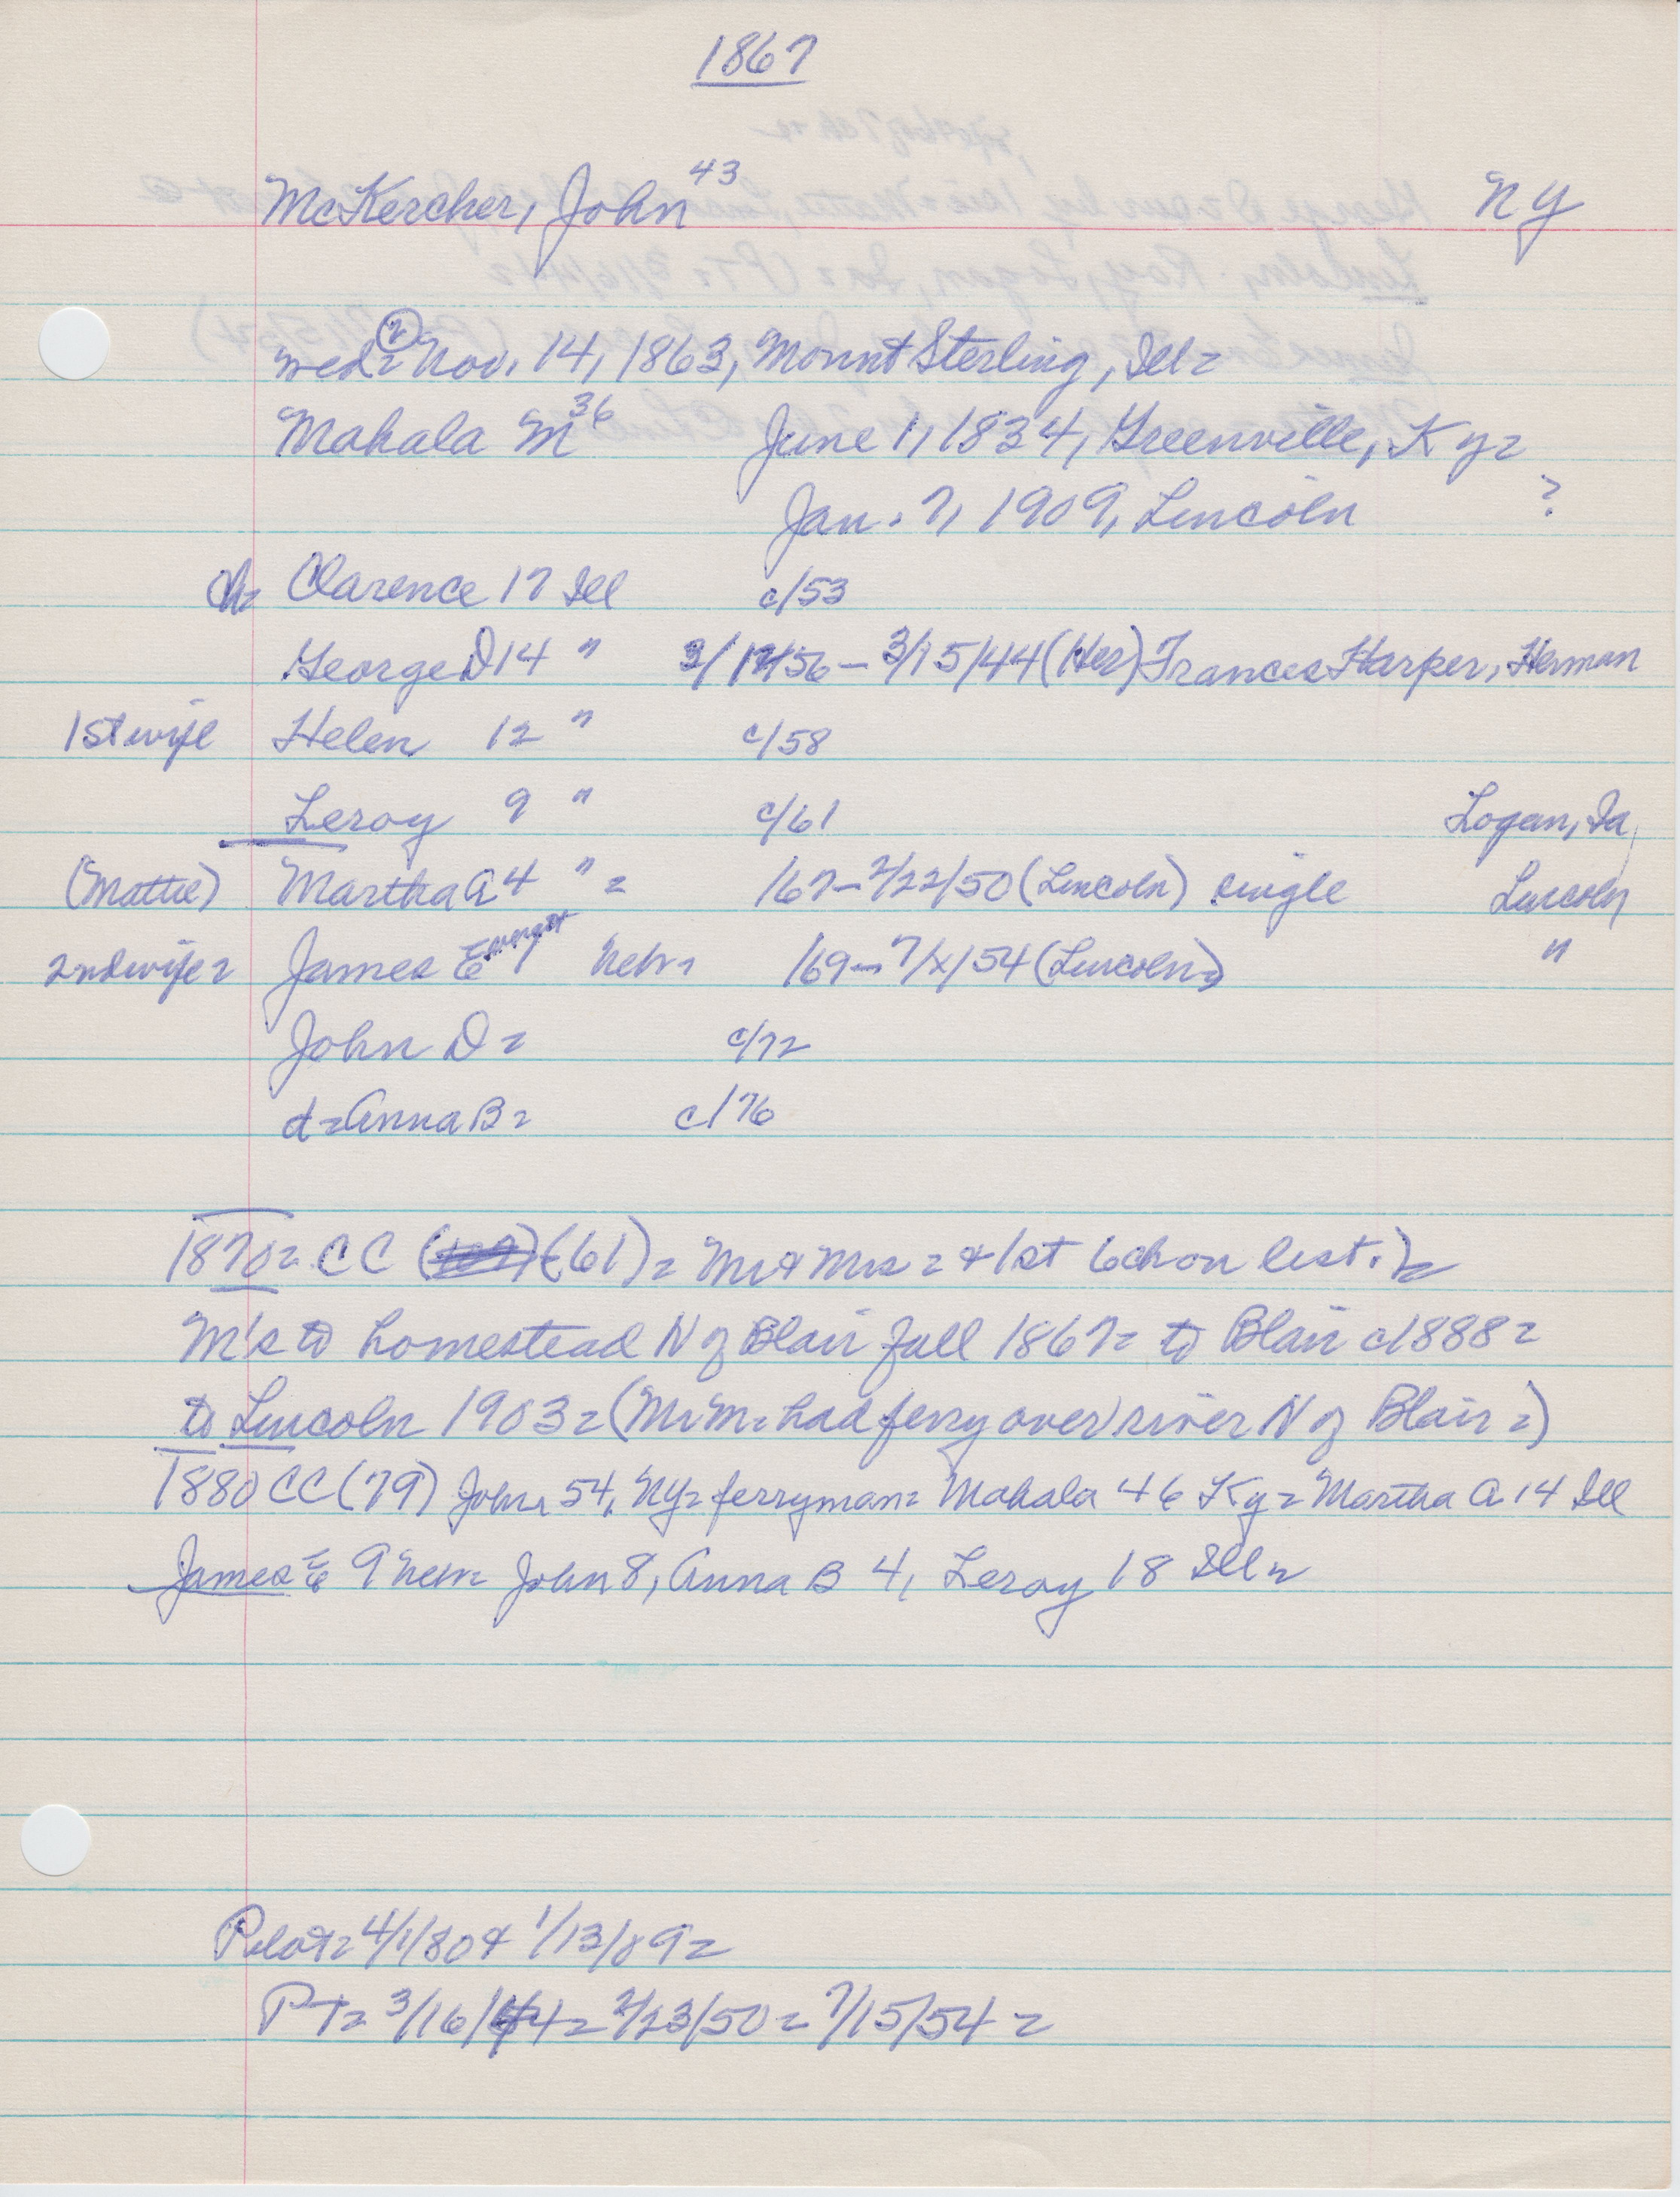 1867
McKercher, John 43 NY
wed= ② Nov. 14, 1863, Mount Sterling, Ill=
Mahala M 36 June 1, 1834, Greenville, Ky=
Jan. 7, 1909, Lincoln ?
ch= Clarence 17 Ill c/53
George D 14 " 3/15/44 (Her) Frances Harper, Herman
1st wife Helen 12 " c/58
Leroy 9 " c/61 Logan, Ia
(Mattie) Martha A 4 " = /67–2/22/50 (Lincoln) single Lincoln
2nd wife= James E Nebr= /69–7/x/54 (Lincoln) "
John D= c/72
d=Anna B= c/76
1870= CC (61)= Mr & Mrs = & 1st 6 ch on list.)=
M's to homestead N of Blair fall 1867= to Blair c1888=
to Lincoln 1903= (Mr M= had ferry over river N of Blair=)
1880 CC (79) John 54, NY= ferryman= Mahala 46 Ky= Martha A 14 Ill
James E 9 Nebr= John 8, Anna B 4, Leroy 18 Ill=
Pilot= 4/1/80 & 1/13/89=
PT= 3/16/44= 2/23/50= 7/15/54=